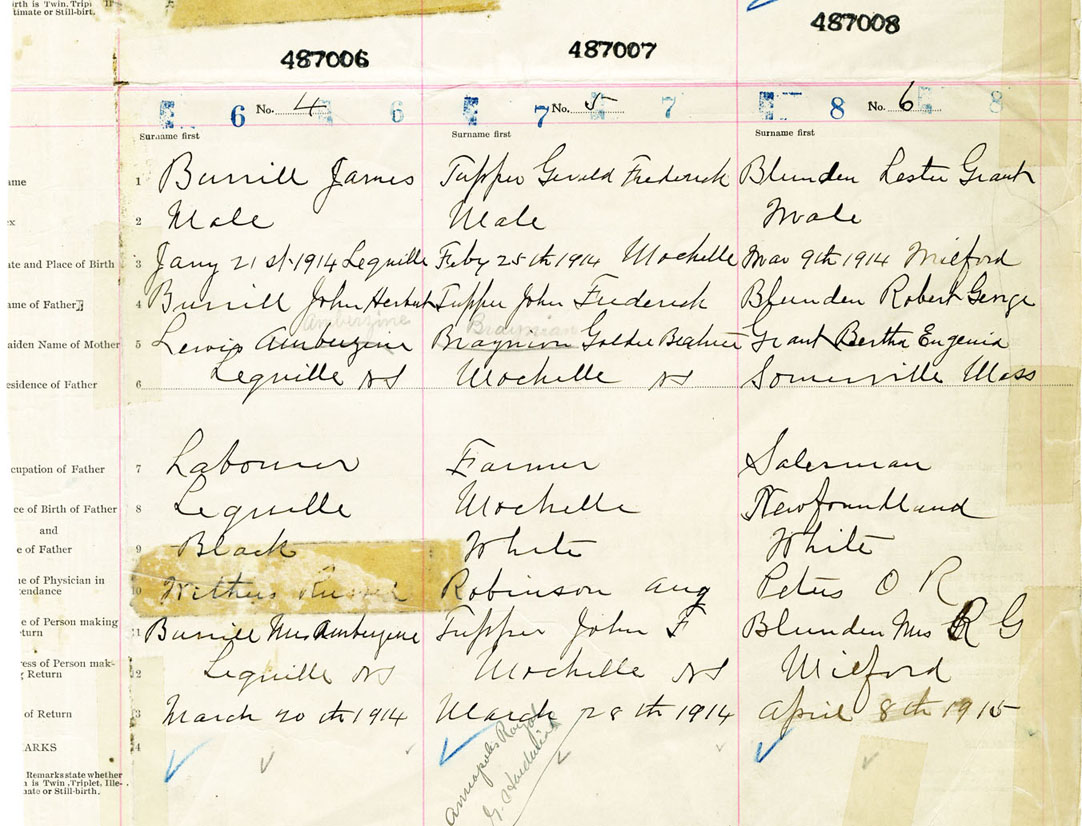 rth is Twin, Tripl
timate or Still-birt.
487006 487007 487008
6 No. 4 6 7 No. 5 7 8 No. 6 8
Surname first Surname first Surname first
ame 1 Burrill James Tupper Gerald Frederick Blunden Lester Grant
ex 2 Male Male Male
ate and Place of Birth 3 Jany 21st 1914 Lequille Feby 25th 1914 Mochelle Mar 9th 1914 Milford
ame of Father 4 Burrill John Herbert Tupper John Frederick Blunden Robert George
Amberzine
aiden Name of Mother 5 Lewis Amberzine Goldie Beatrice Grant Bertha Eugenia
esidence of Father 6 Lequille NS Mochelle NS Somerville Mass
cupation of Father 7 Labourer Farmer Salesman
ce of Birth of Father 8 Lequille Mochelle Newfoundland
and
e of Father 9 Black White White
ne of Physician in
tendance 10 Robinson Aug Peters O R
e of Person making
turn 11 Burrill Mrs Amberzine Tupper John F Blunden Mrs R G
ress of Person mak-
g Return 12 Lequille NS Mochelle NS Milford
of Return 13 March 20th 1914 March 28th 1914 April 8th 1915
ARKS 14
Annapolis Royal
Remarks state whether
h is Twin, Triplet, Ille-
nate or Still-birth.